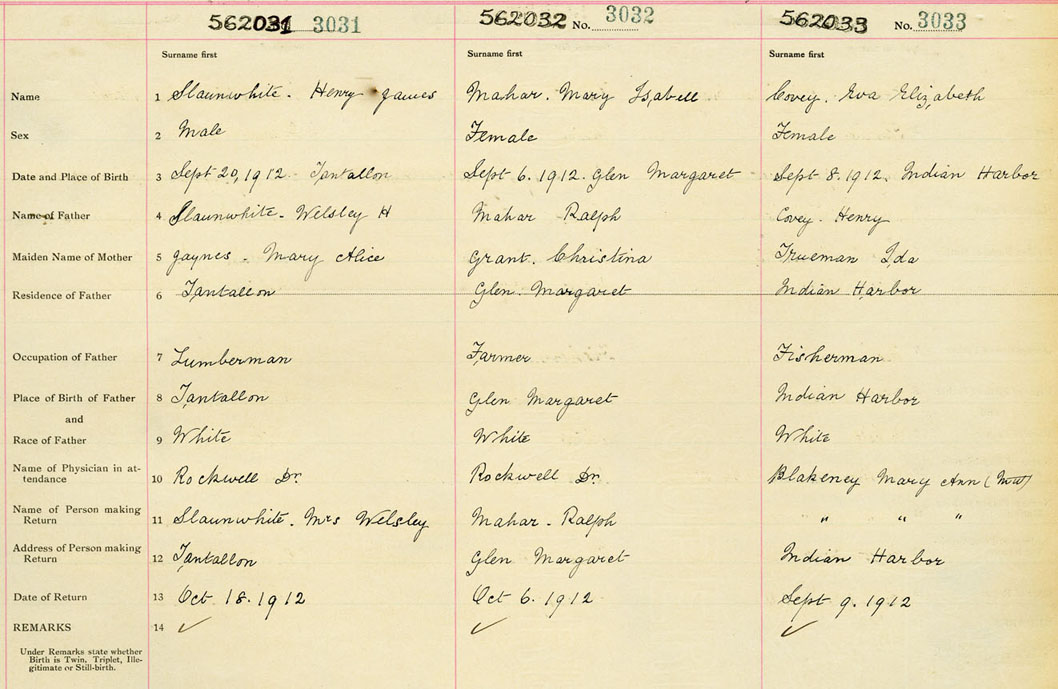 562031 3031 562032 No. 3032 562033 No. 3033
Surname first Surname first Surname first
Name 1 Slaunwhite. Henry James Mahar. Mary Isabell Covey. Eva Elizabeth
Sex 2 Male Female Female
Date and Place of Birth 3 Sept 20, 1912 Tantallon Sept 6. 1912. Glen Margaret Sept 8. 1912. Indian Harbor
Name of Father 4 Slaunwhite - Welsley H Mahar Ralph Covey. Henry
Maiden Name of Mother 5 Jaynes - Mary Alice Grant. Christina Trueman Ida
Residence of Father 6 Tantallon Glen. Margaret Indian Harbor
Occupation of Father 7 Lumberman Farmer Fisherman
Place of Birth of Father 8 Tantallon Glen Margaret Indian Harbor
and
Race of Father 9 White White White
Name of Physician in at-
tendance 10 Rockwell Dr. Rockwell Dr. Blakeney Mary Ann
Name of Person making
Return 11 Slaunwhite. Mrs Welsley Mahar - Ralph " " "
Address of Person making
Return 12 Tantallon Glen Margaret Indian Harbor
Date of Return 13 Oct 18. 1912 Oct 6. 1912 Sept 9. 1912
REMARKS 14 ✓ ✓ ✓
Under Remarks state whether
Birth is Twin, Triplet, Ille-
gitimate or Still-birth.